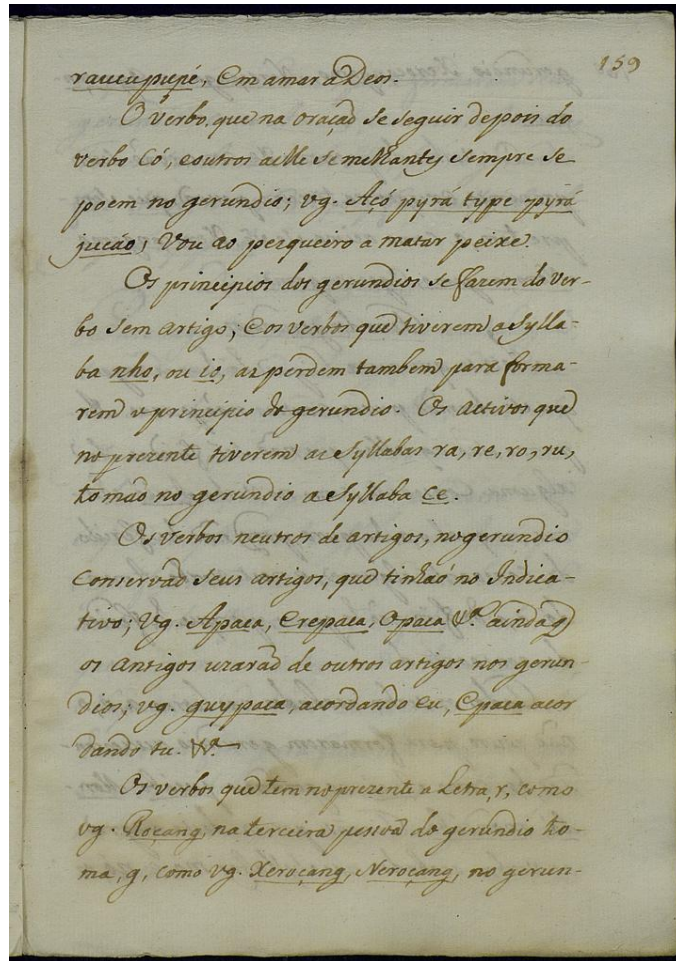 159
rauçupupé, Em amar a Deos.
O verbo, que na oraçaõ se seguir depois do
verbo Có, e outros a elle semelhantes sempre se
poem no gerundio; vg. Açó pyrá type pyrá
jucáo, Vou ao pezqueiro a matar peixe.
Os principios dos gerundios se fazem do ver-
bo sem artigo, e os verbos que tiverem a sylla-
ba nho, ou io, as perdem tambem para forma-
rem o principio do gerundio. Os activos que
no prezente tiverem as syllabas ra, re, ro, ru,
tomaõ no gerundio a syllaba ce.
Os verbos neutros de artigos, no gerundio
conservaõ seus artigos, que tinhaõ no Indica-
tivo; vg. Apaca, Erepaca, Opaca &.ª ainda q
os antigos uzaraõ de outros artigos nos gerun-
dios; vg. guypaca, acordando eu, Epaca acor
dando tu. &.ª
Os verbos que tem no prezente a Letra, r, como
vg. Roçang, na terceira pessoa do gerundio to-
ma, g, como vg. Xeroçang, Neroçang, no gerun-